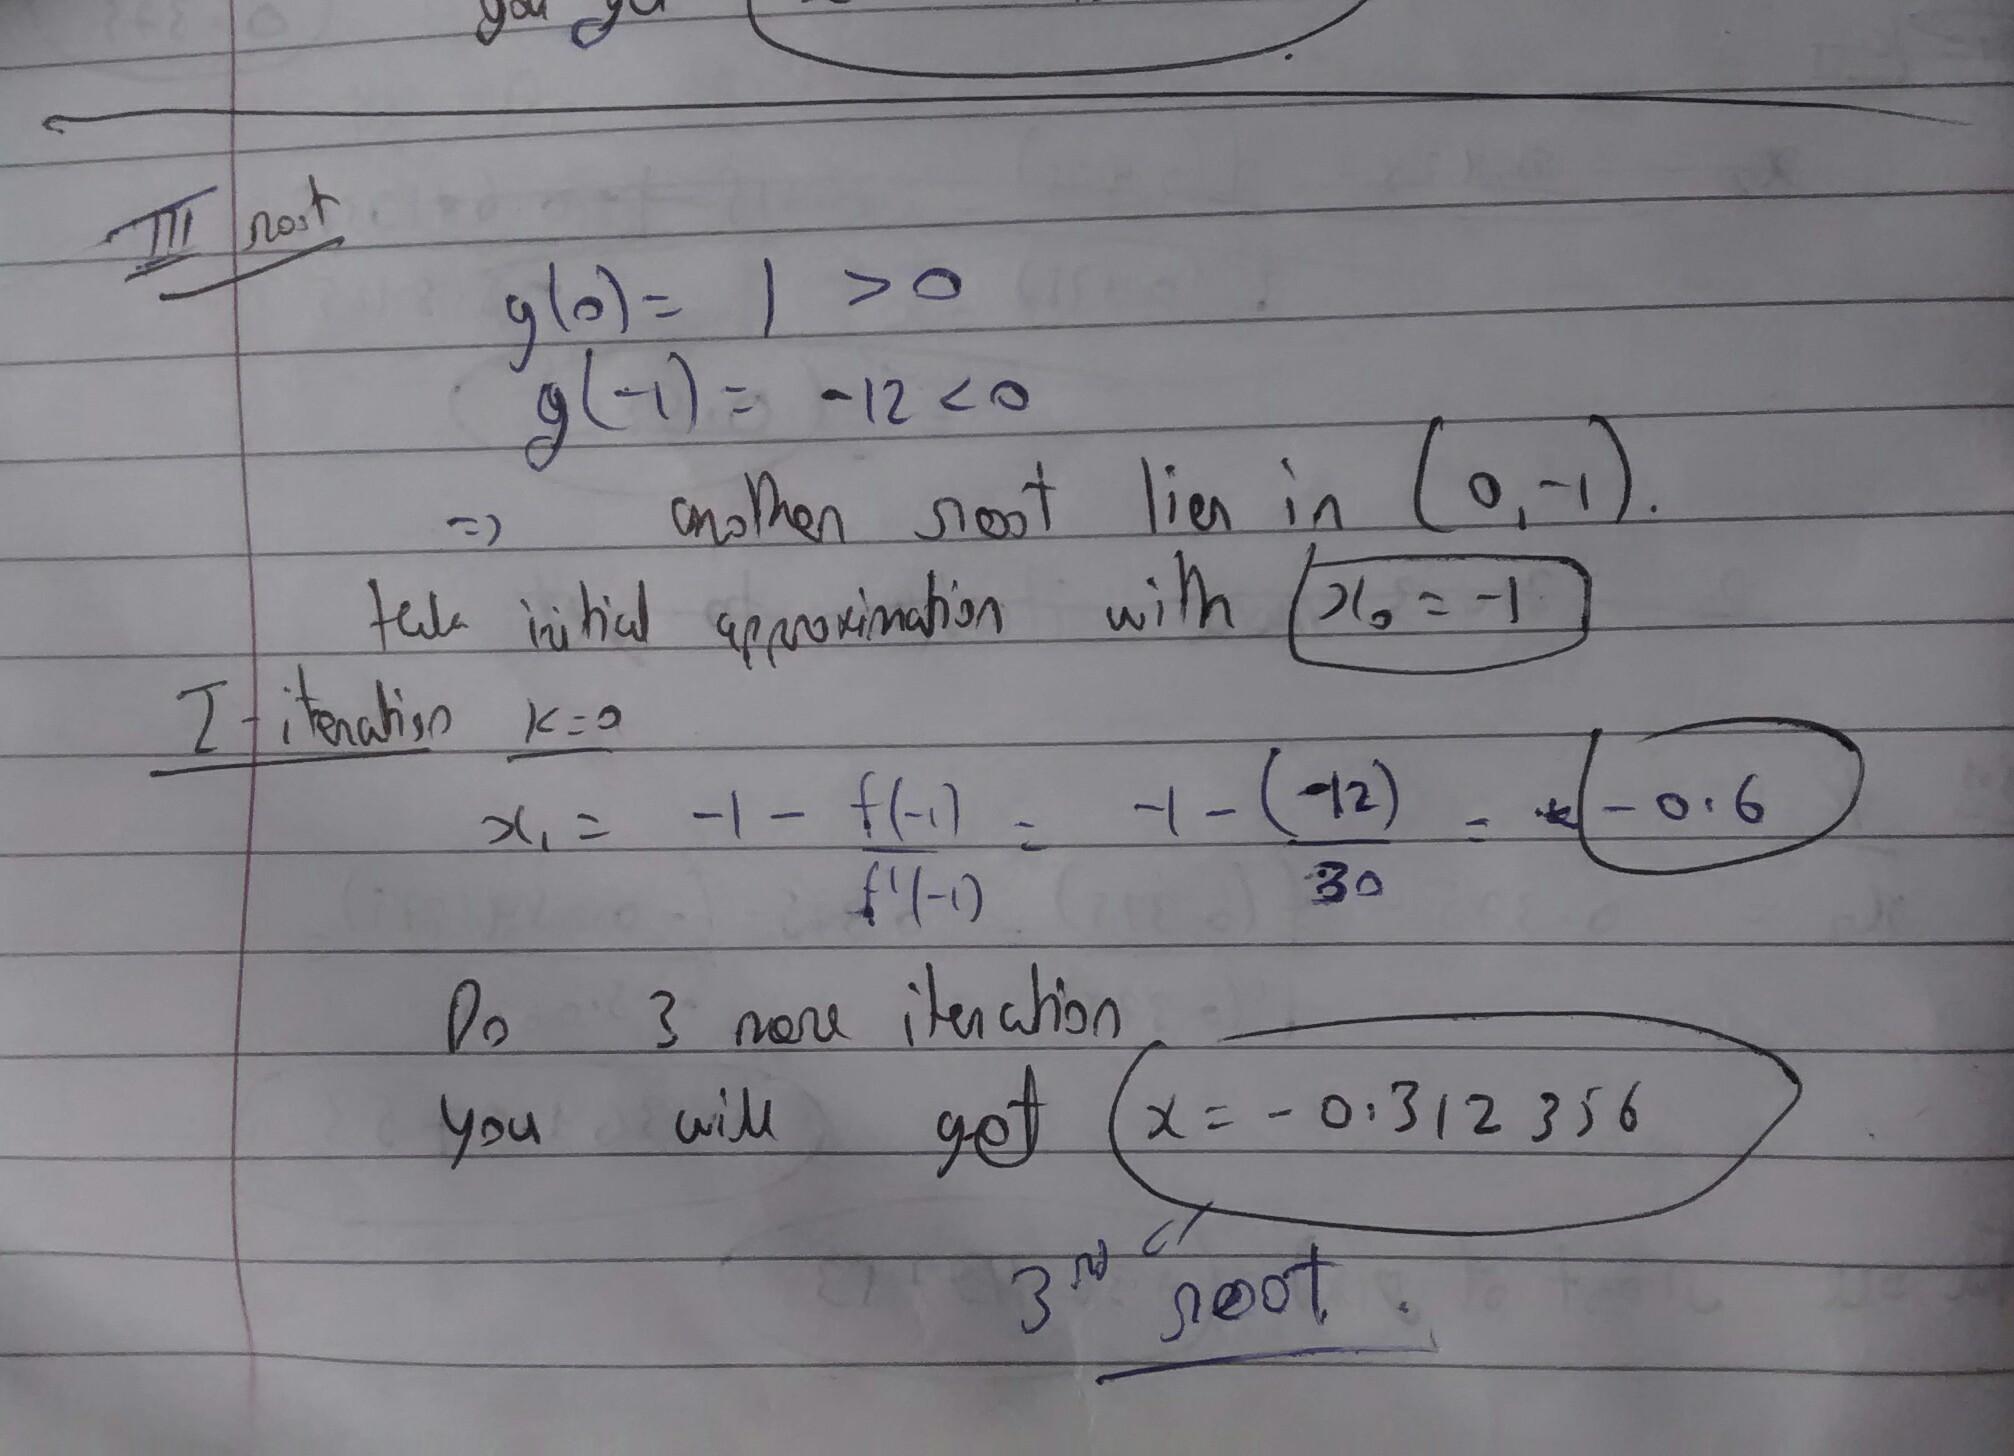 you
III root
g(0) = 1 > 0
g(-1) = -12 < 0
=> another root lies in (0, -1).
take initial approximation with x₀ = -1
I - iteration k=0
x₁ = -1 - f(-1)/f'(-1) = -1 - (-12)/30 = -0.6
Do 3 more iteration
you will get x = -0.312356
3rd root.